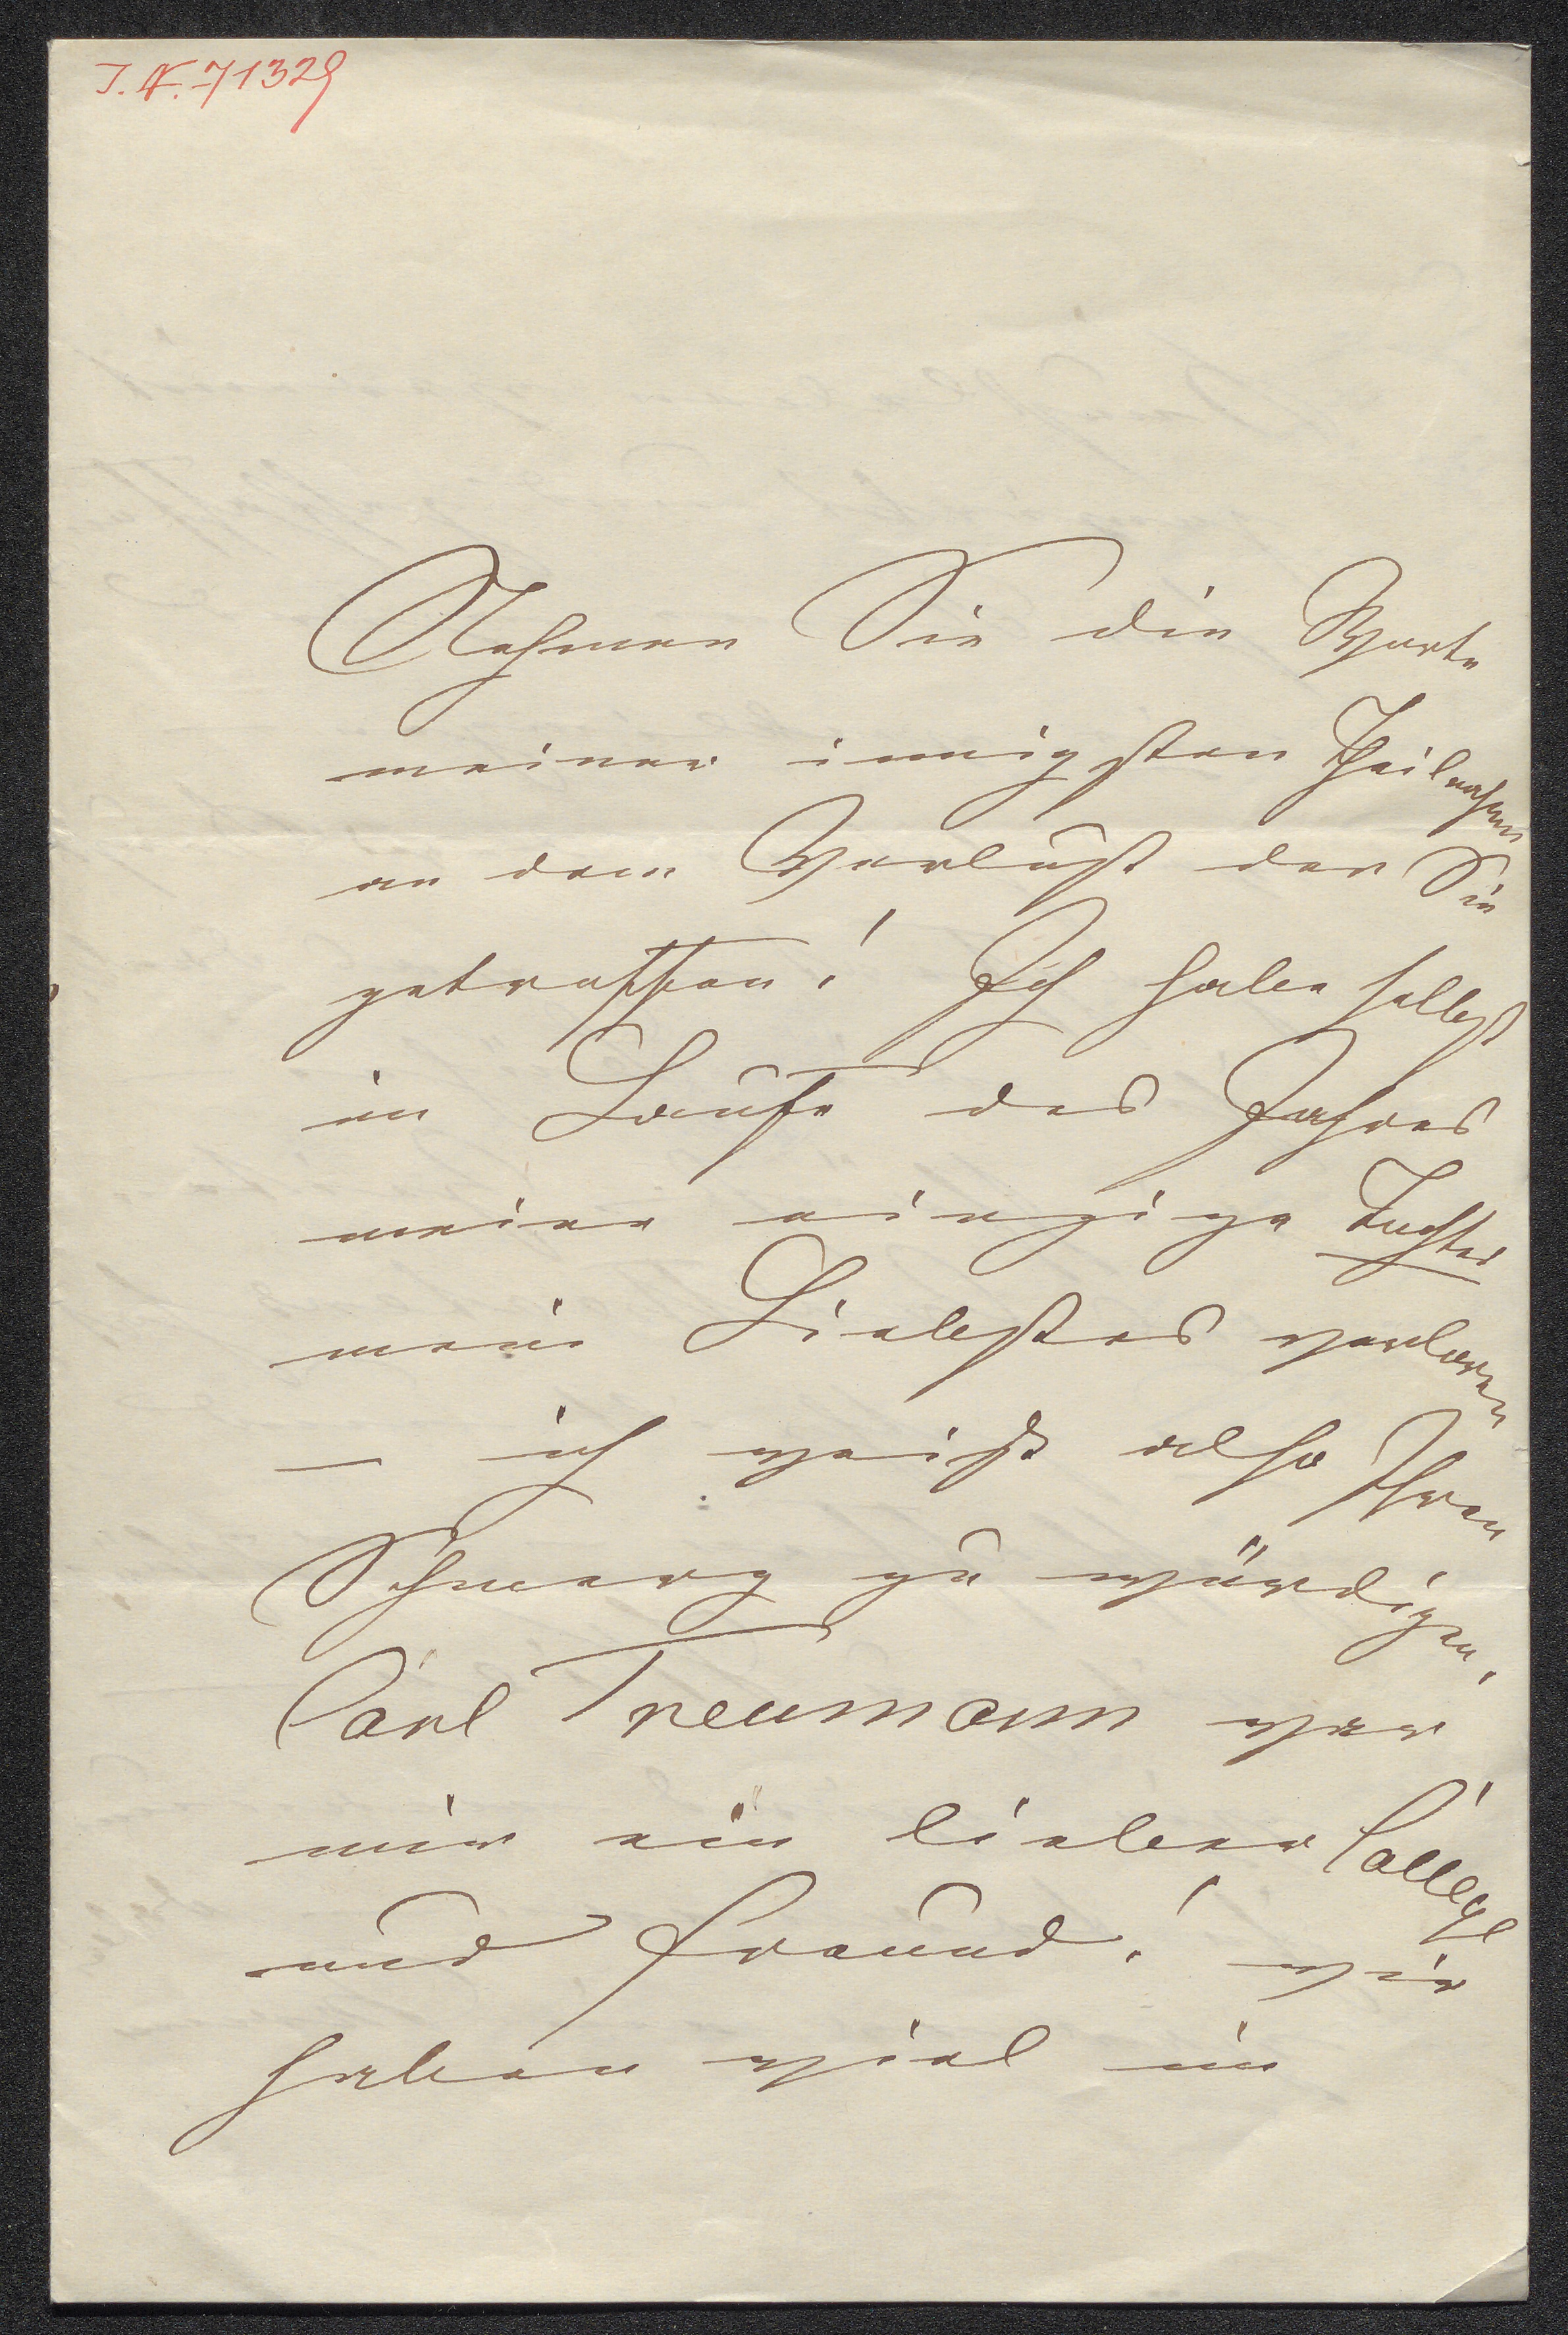 I. N. 71329
Nehmen Sie die Worte
meiner innigsten Theilnahme
an dem Verlust der Sie
getroffen! Ich habe selbst
im Laufe des Jahres
meine einzige Tochter
mein Liebstes verloren
– ich weiß also Ihren
Schmerz zu würdigen.
Carl Treumann war
mir ein lieber College
und Freund! wir
haben viel in